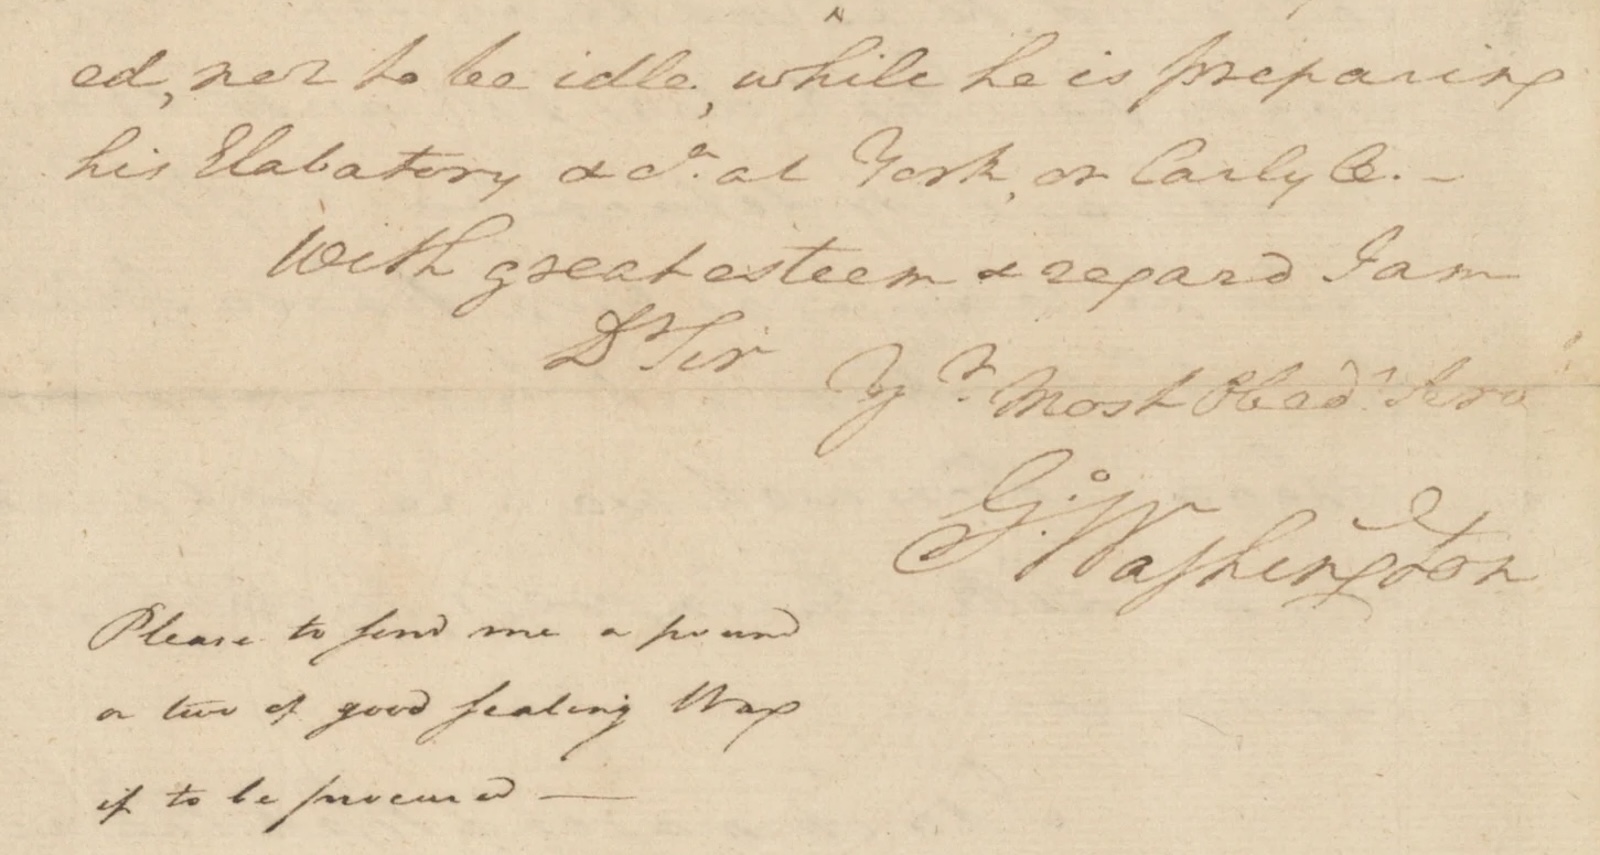 ed, not to be idle, while he is preparing
his Elabatory &ca. at York, or Carlyle. –
With great esteem & regard I am
Dr Sir
Yr. Most Obedt. Serv
Go. Washington
Please to send me a pound
or two of good sealing Wax
if to be procured —